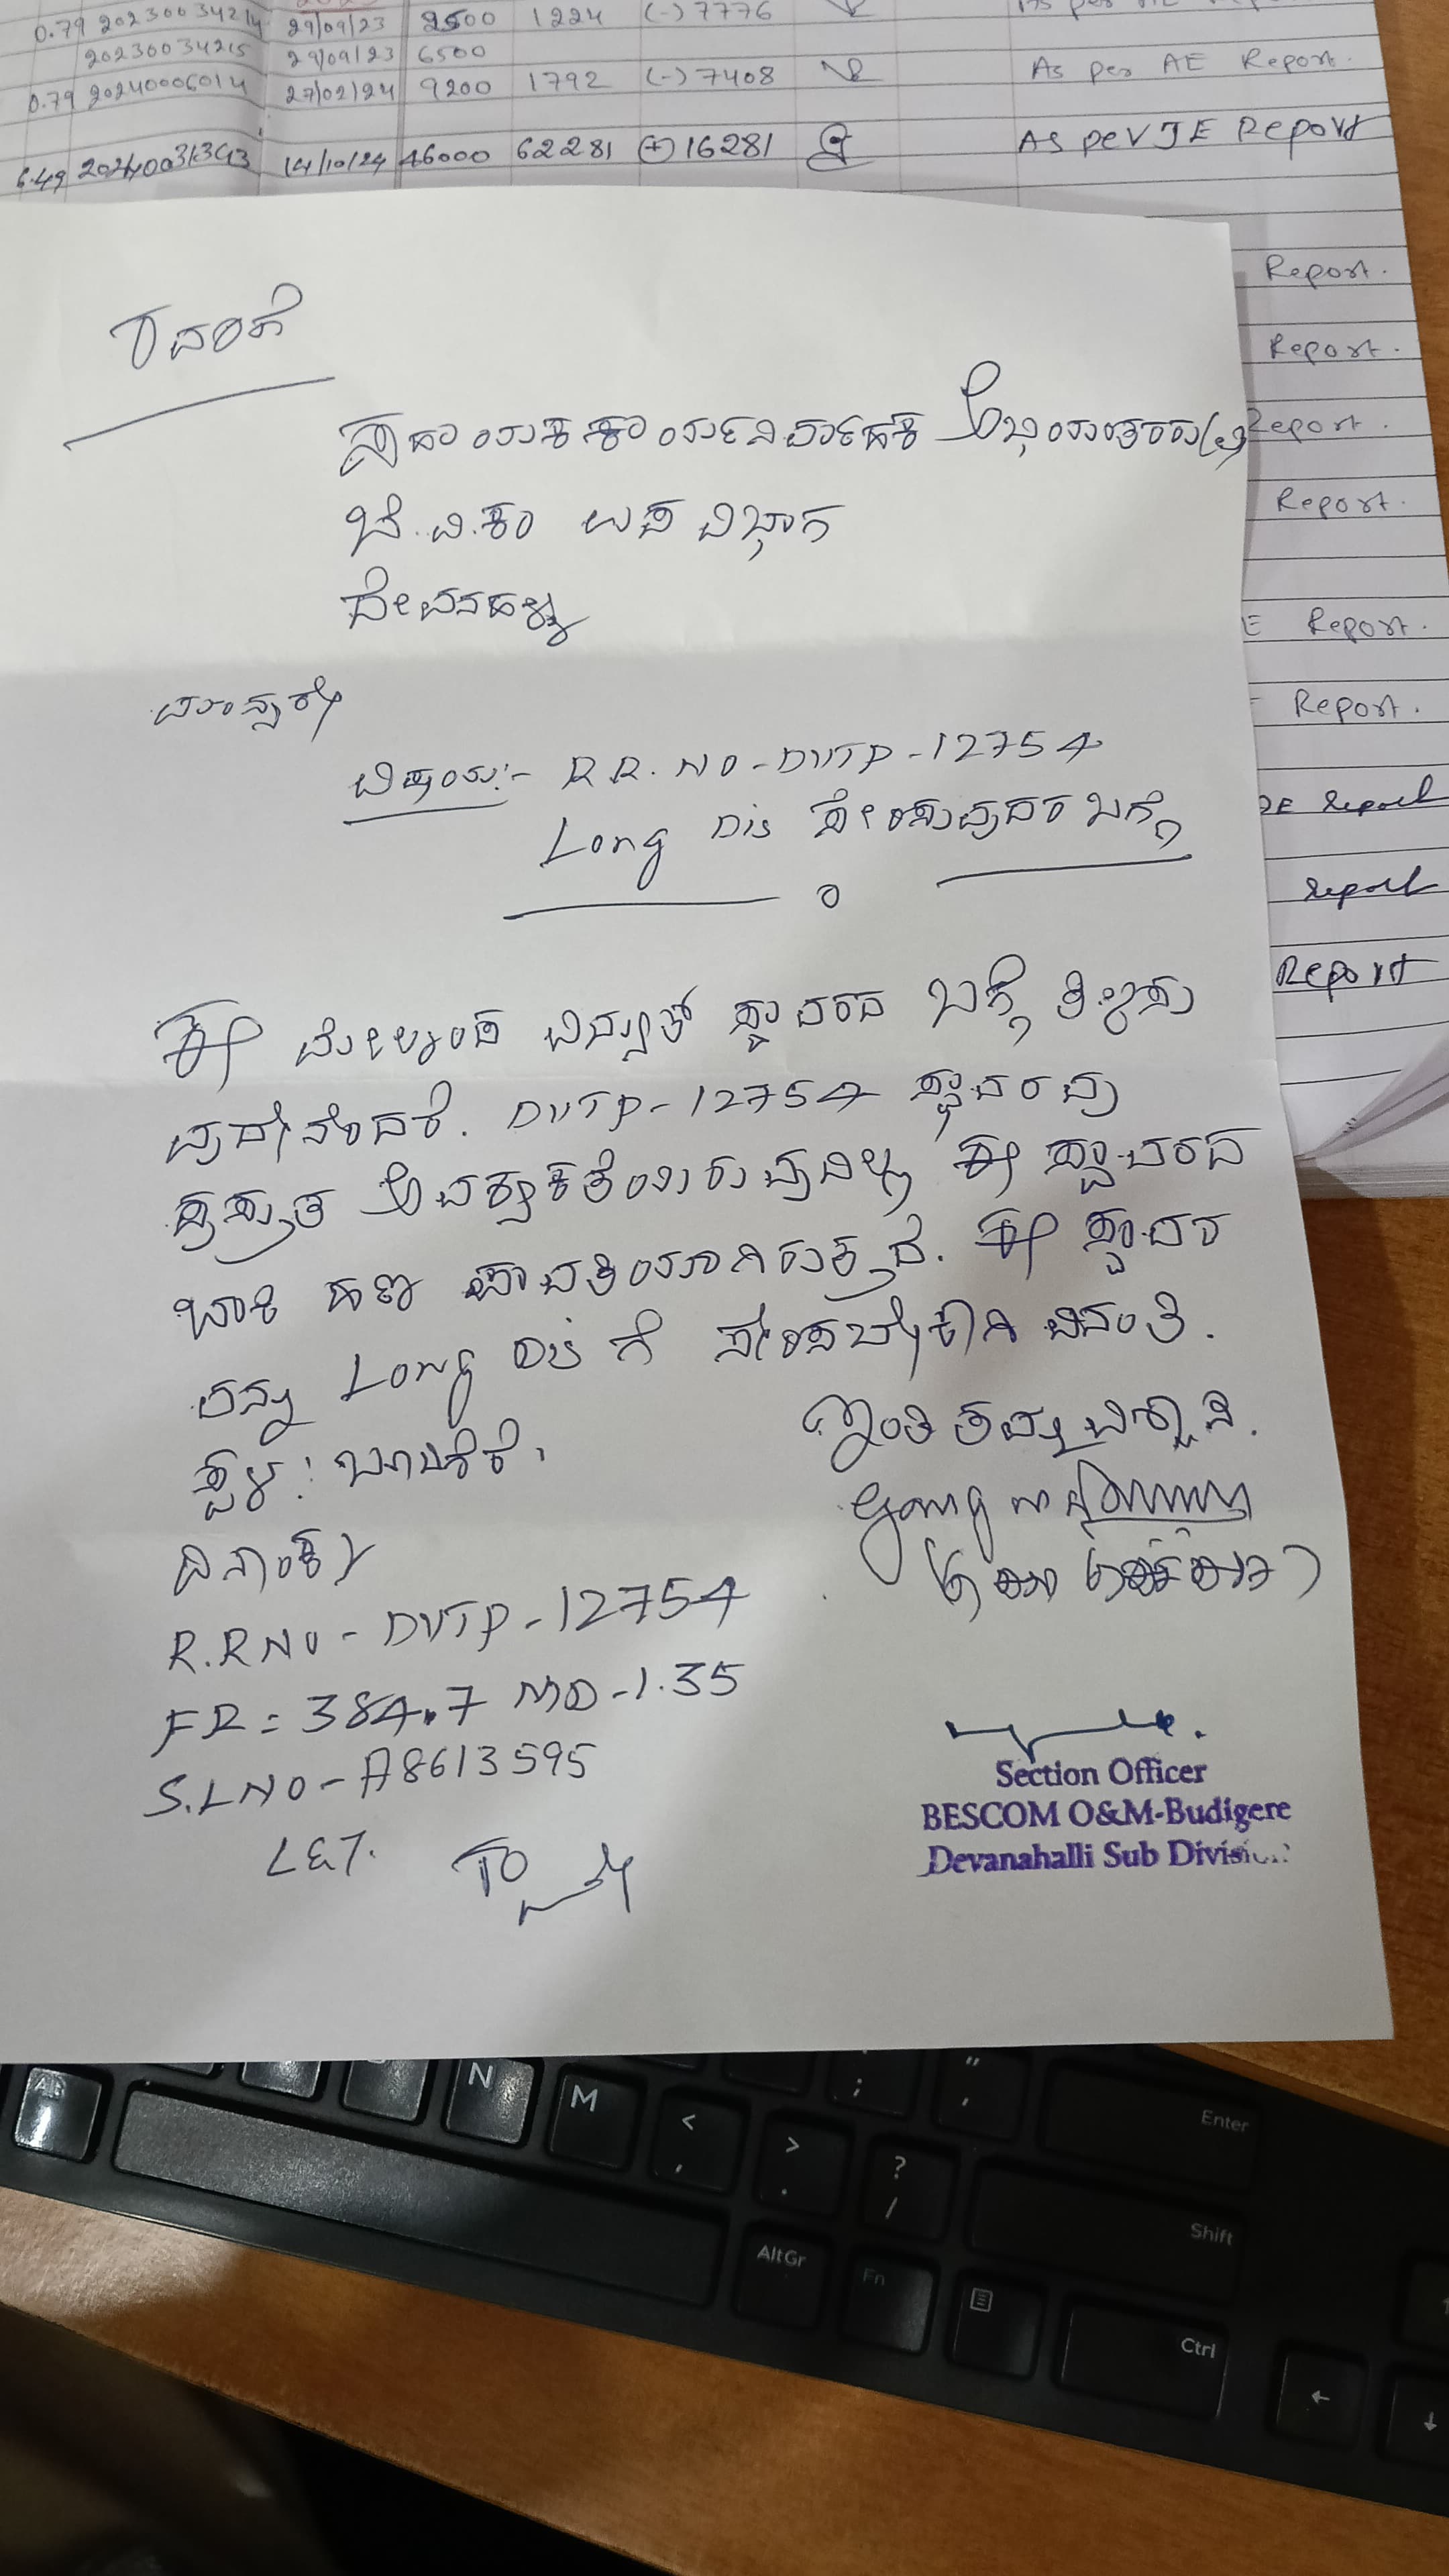 0.79 20230034214 29/09/23 2500 1224 (-) 7776
20230034215 29/09/23 6500
0.79 20240006014 27/02/24 9200 1792 (-) 7408 As per AE Report.
6.49 20240031393 14/10/24 46000 62281 (+) 16281 As per JE Report
Report.
Report.
Report.
Report.
E Report.
Report.
JE Report
Report
Report
ರವರಿಗೆ
ಸಹಾಯಕ ಕಾರ್ಯನಿರ್ವಾಹಕ ಅಭಿಯಂತರರು(ವಿ)
ಬೆ.ವಿ.ಕಂ ಉಪ ವಿಭಾಗ
ದೇವನಹಳ್ಳಿ
ಮಾನ್ಯರೇ
ವಿಷಯ:- R.R.NO-DVTP-12754
Long Dis ಸೇರಿಸುವುದರ ಬಗ್ಗೆ
ಈ ಮೇಲ್ಕಂಡ ವಿದ್ಯುತ್ ಸ್ಥಾವರದ ಬಗ್ಗೆ ತಿಳಿಸು
ವುದೇನೆಂದರೆ. DVTP-12754 ಸ್ಥಾವರವು
ಪ್ರಸ್ತುತ ಅವಶ್ಯಕತೆಯಿರುವುದಿಲ್ಲ ಈ ಸ್ಥಾವರದ
ಬಾಕಿ ಹಣ ಪಾವತಿಯಾಗಿರುತ್ತದೆ. ಈ ಸ್ಥಾವರ
ವನ್ನು Long Dis ಗೆ ಸೇರಿಸಬೇಕಾಗಿ ವಿನಂತಿ.
ಸ್ಥಳ: ಬೂದಿಗೆರೆ. ಇಂತಿ ತಮ್ಮ ವಿಶ್ವಾಸಿ.
ದಿನಾಂಕ
R.R NO - DVTP-12754
FR = 384.7 MD-1.35
S.L NO - A8613595
L&T.
Section Officer
BESCOM O&M-Budigere
Devanahalli Sub Division
N
M
<
,
>
.
?
/
;
"
,
Enter
Shift
AltGr
Fn
Ctrl
←
↓